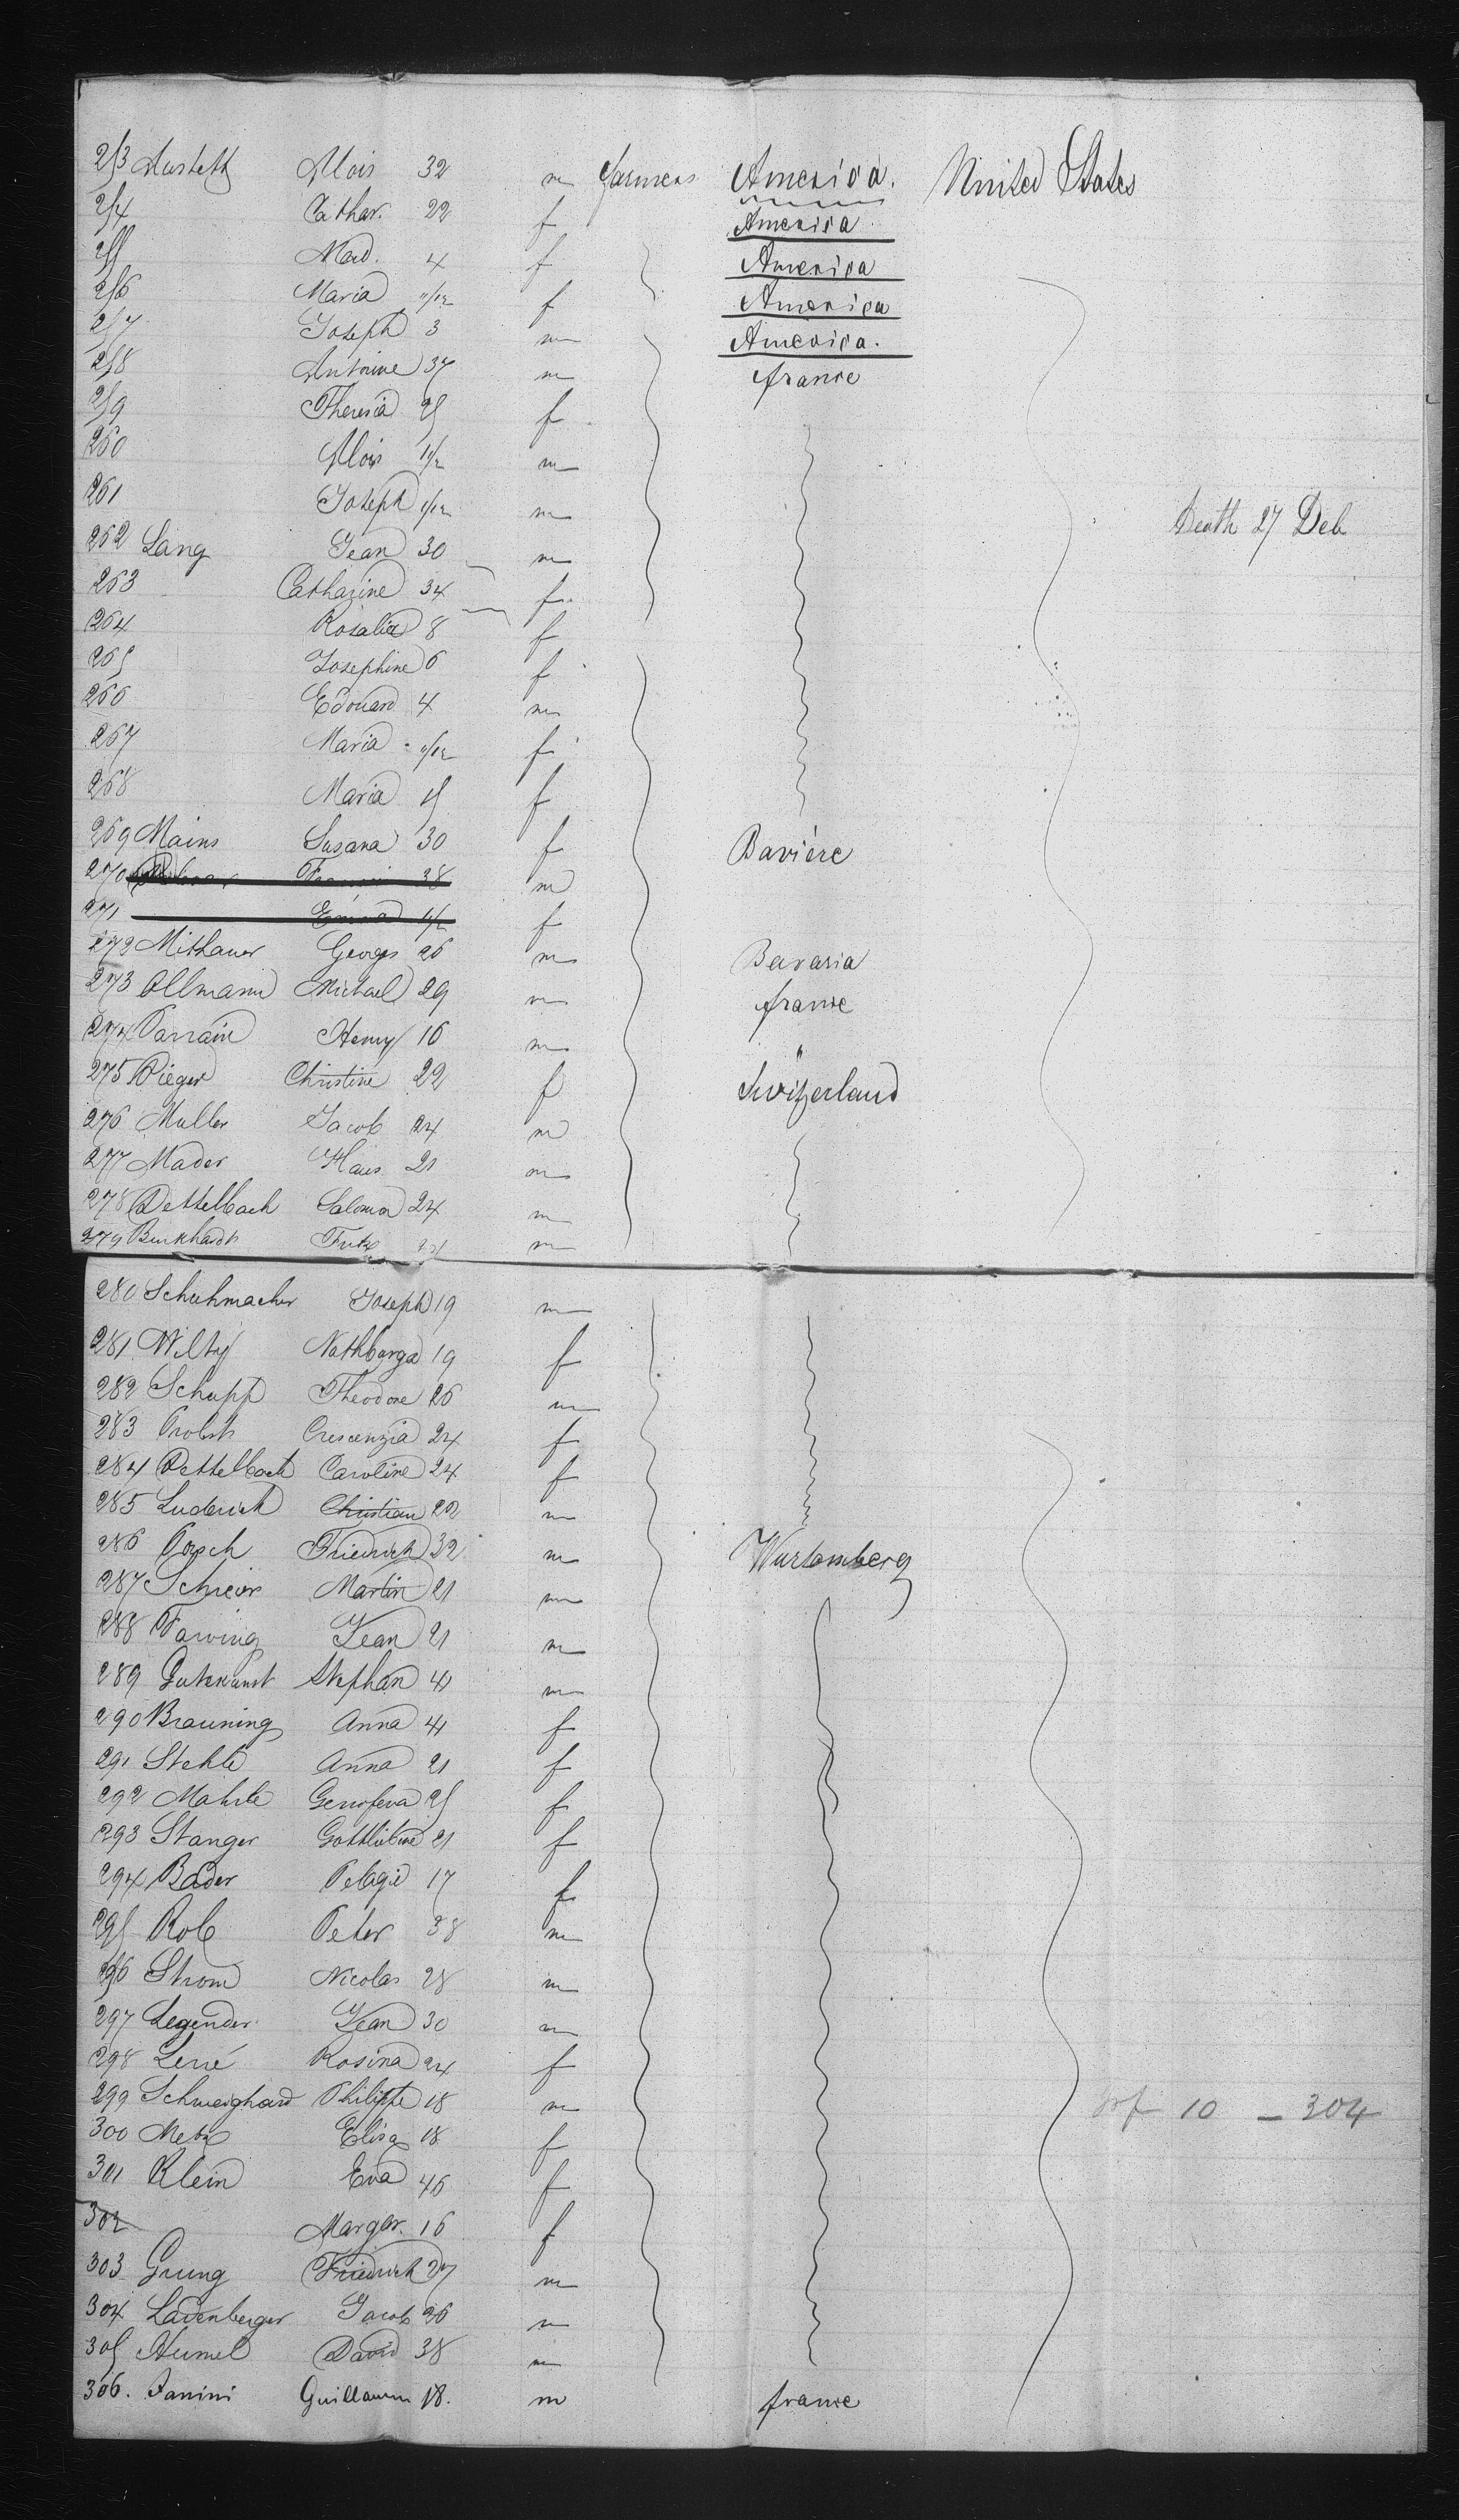 253 Austett Alois 32 m farmers America. United States
254 Cathar. 22 f America
255 Mad. 4 f America
256 Maria 11/12 f America
257 Joseph 3 m America.
258 Antoine 37 m france
259 Theresia 25 f
260 Alois 1 1/2 m
261 Joseph 1/12 m Death 27 Deb
262 Lang Jean 30 m
263 Catharine 34 f
264 Rosalie 8 f
265 Josephine 6 f
266 Edouard 4 m
267 Maria 11/12 f
268 Maria 15 f
269 Mains Susana 30 f Baviére
270 38 m
271 Emma f
272 Mithauer Georges 26 m Bavaria
273 Ollmann Michael 29 m france
274 Parrain Henry 16 m "
275 Rieger Christine 22 f Switzerland
276 Muller Jacob 24 m
277 Mader Hans 21 m
278 Dettelbach Salomon 24 m
279 Burkhardt Fritz m
280 Schuhmacher Joseph 19 m
281 Wilty Nothburga 19 f
282 Schupp Theodore 26 m
283 Probst Crescenzia 24 f
284 Dettelbach Caroline 24 f
285 Luderich Christian 22 m
286 Posch Friedrich 32 m Wurtemberg
287 Schreier Martin 21 m
288 Farving Jean 21 m
289 Gutekunst Stephan 41 m
290 Brauning Anna 41 f
291 Stehle Anna 21 f
292 Mahrle Genofeva 25 f
293 Stanger Gottliebine 21 f
294 Bader Pelagie 17 f
295 Rob Peter 38 m
296 Strom Nicolas 28 m
297 Legender Jean 30 m
298 Lerré Rosina 24 f
299 Schweighard Philippe 18 m 10 – 304
300 Metz Elisa 18 f
301 Klein Eva 46 f
302 Margar. 16 f
303 Grung Friedrich 27 m
304 Ladenberger Jacob 26 m
305 Humel David 38 m
306. Janini Guillaume 18. m france